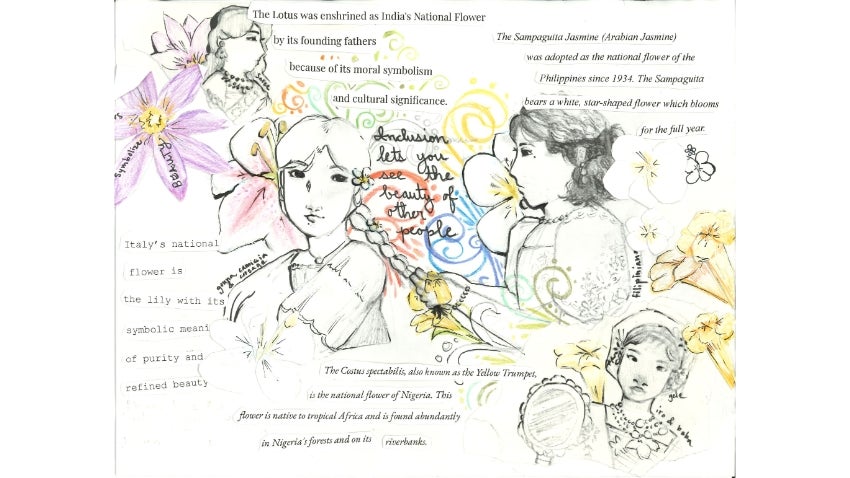 The Lotus was enshrined as India's National Flower
by its founding fathers
because of its moral symbolism
and cultural significance.
The Sampaguita Jasmine (Arabian Jasmine)
was adopted as the national flower of the
Philippines since 1934. The Sampaguita
bears a white, star-shaped flower which blooms
for the full year.
Symbolize
BEAUTY
Inclusion
lets you
see the
beauty of
other
people
Italy's national
flower is
the lily with its
symbolic meani
of purity and
refined beauty
filipiniana
The Costus spectabilis, also known as the Yellow Trumpet,
is the national flower of Nigeria. This
flower is native to tropical Africa and is found abundantly
in Nigeria's forests and on its riverbanks.
gele